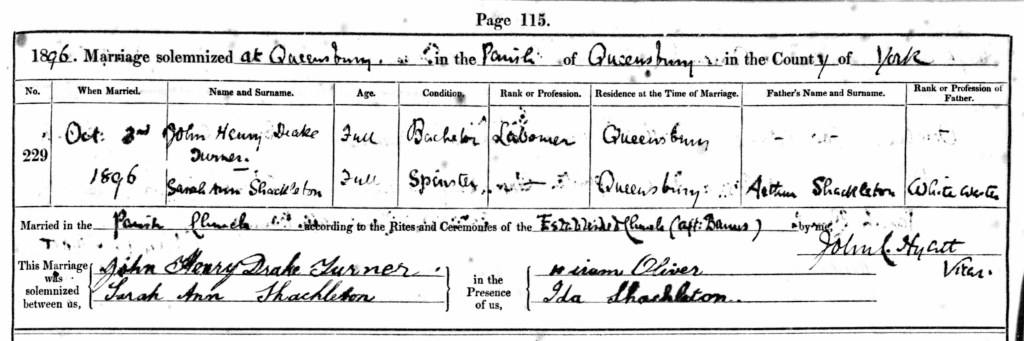 Page 115.
1896. Marriage solemnized at Queensbury in the Parish of Queensbury in the County of York
No. When Married. Name and Surname. Age. Condition. Rank or Profession. Residence at the Time of Marriage. Father's Name and Surname. Rank or Profession of Father.
229 Oct: 3rd 1896 John Henry Drake Turner. Full Bachelor Labourer Queensbury
Sarah Ann Shackleton Full Spinster Queensbury Arthur Shackleton
Married in the Parish Church according to the Rites and Ceremonies of the Established Church (aft: Banns) by me,
John C. Hyatt
Vicar.
This Marriage was solemnized between us, John Henry Drake Turner in the Presence of us, Hiram Oliver
Sarah Ann Shackleton Ida Shackleton